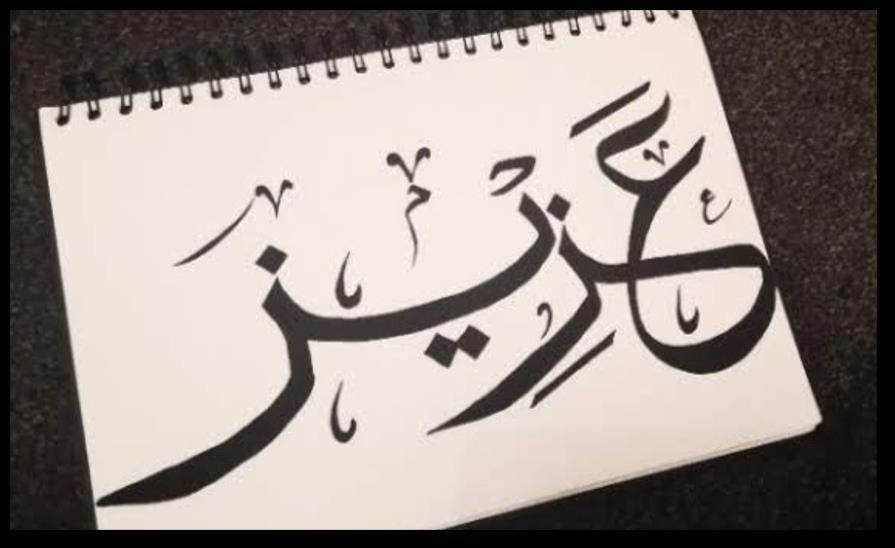 عَزِيز